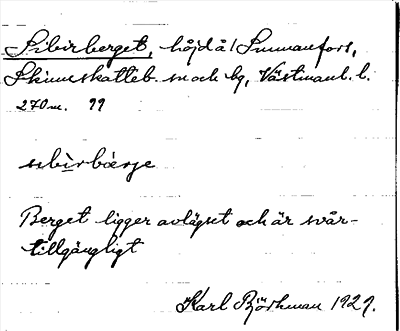 Sibirberget, höjd å l Smmanfors,
Skinnskatteb. sn och bg, Västmanl. l.
270 m. 99
sibìrbærje
Berget ligger avlägset och är svår-
tillgängligt
Karl Björkman 1929.